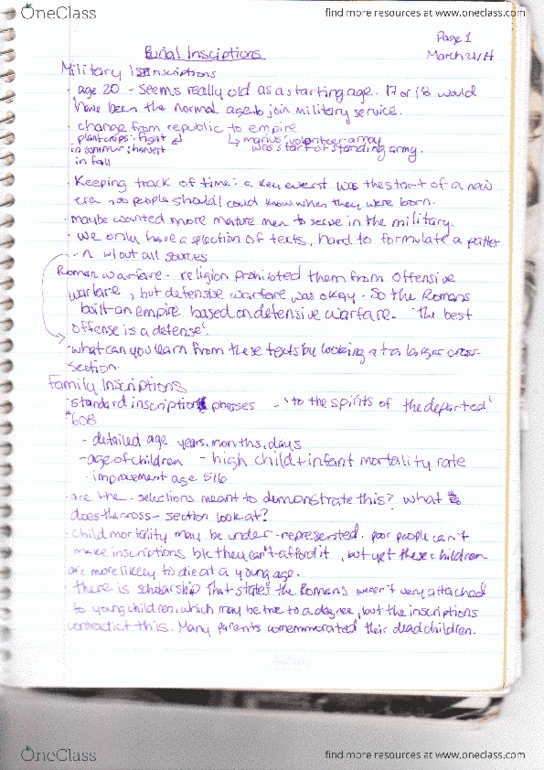 OneClass
find more resources at www.oneclass.com
Page 1
Burial Insciptions
March 21/14
Military Inscriptions
· age 20 - Seems really old as a starting age. 17 or 18 would
have been the normal age to join military service.
· change from republic to empire
plant crops: fight
↳ marius: volunteer army
in summer; harvest
was start of standing army.
in fall
· Keeping track of time: a key event was the start of a new
era → so people should/could know when they were born.
· maybe wanted more mature men to serve in the military.
· we only have a selection of texts, hard to formulate a patter
-n w/out all sources
Roman warfare - religion prohibited them from offensive
warfare, but defensive warfare was okay - So the Romans
built an empire based on defensive warfare. 'the best
offense is a defense'.
· what can you learn from these texts by looking at a larger cross-
section.
Family Inscriptions
· standard inscription phrases - 'to the spirits of the departed'
608
- detailed age years, months, days
- age of children - high child + infant mortality rate
- improvement age 5/6
· are the selections meant to demonstrate this? what
does the cross-section look at?
· child mortality may be under-represented. poor people can't
make inscriptions b/c they can't afford it, but yet these children
are more likely to die at a young age.
· there is scholarship that states the Romans weren't very attached
to young children, which may be true to a degree, but the inscriptions
contradict this. Many parents commemorated their dead children.
OneClass
find more resources at www.oneclass.com